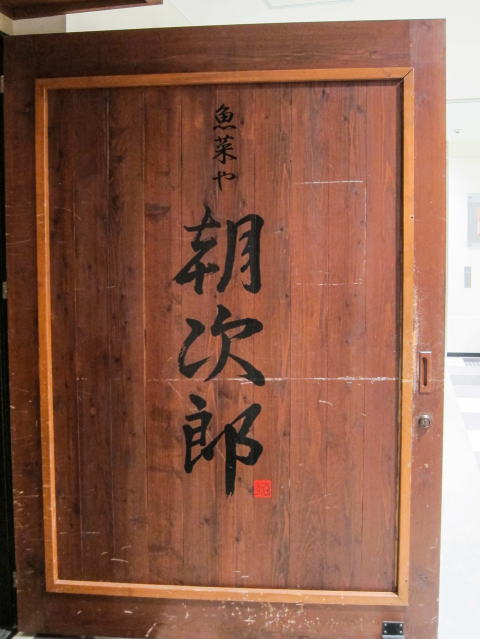 魚菜や
朝次郎